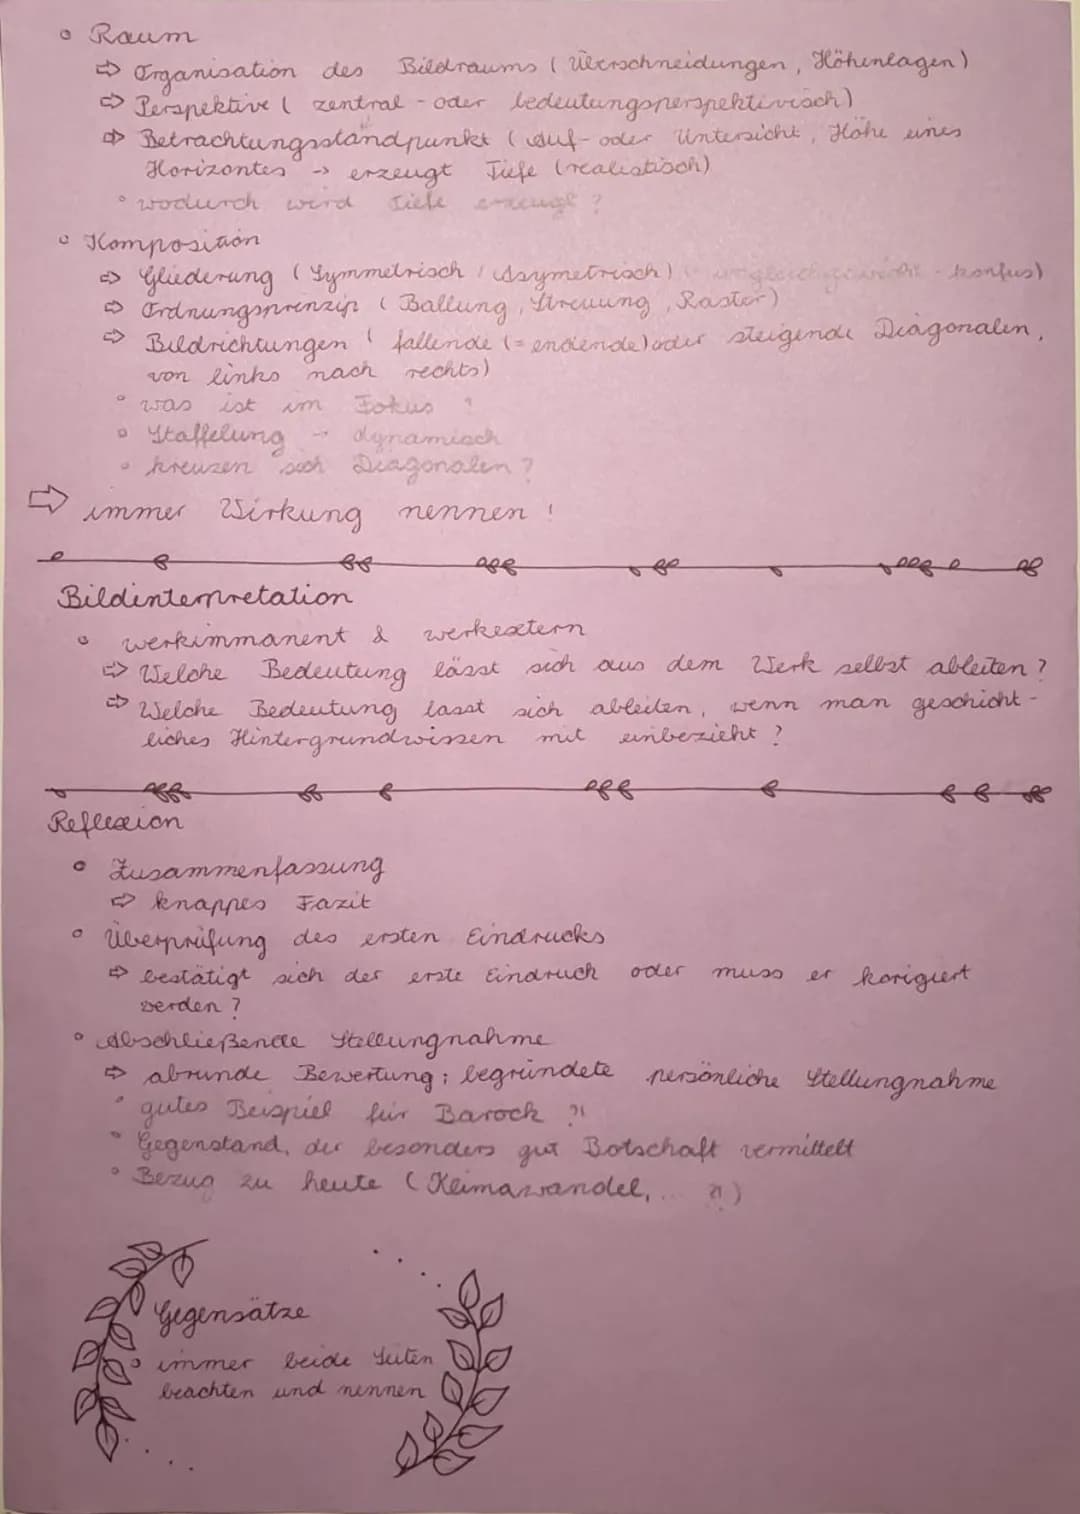 Raum
⇨ Organisation des Bildraums ( Überschneidungen, Höhenlagen)
⇨ Perspektive ( zentral - oder bedeutungsperspektivisch)
⇨ Betrachtungsstandpunkt ( Auf- oder Untersicht, Höhe eines
Horizontes → erzeugt Tiefe (realistisch)
° wodurch wird Tiefe erzeugt ?
Komposition
⇨ Gliederung ( Symmetrisch / Assymetrisch) konfus)
⇨ Ordnungsprinzip ( Ballung, Streuung, Raster)
⇨ Bildrichtungen ( fallende (= endende) oder steigende Diagonalen,
von links nach rechts)
° was ist im Fokus ?
° Staffelung → dynamisch
° kreuzen sich Diagonalen ?
⇨ immer Wirkung nennen !
Bildinterpretation
° werkimmanent & werkextern
⇨ Welche Bedeutung lässt sich aus dem Werk selbst ableiten ?
⇨ Welche Bedeutung lasst sich ableiten, wenn man geschicht-
liches Hintergrundwissen mit einbezieht ?
Reflexion
° Zusammenfassung
⇨ knappes Fazit
° Überprüfung des ersten Eindrucks
⇨ bestätigt sich der erste Eindruck oder muss er korigiert
werden ?
° Abschließende Stellungnahme
⇨ abrunde Bewertung; begründete persönliche Stellungnahme
° gutes Beispiel für Barock ?!
° Gegenstand, der besonders gut Botschaft vermittelt
° Bezug zu heute ( Klimawandel, ... ?!)
Gegensätze
° immer beide Seiten
beachten und nennen